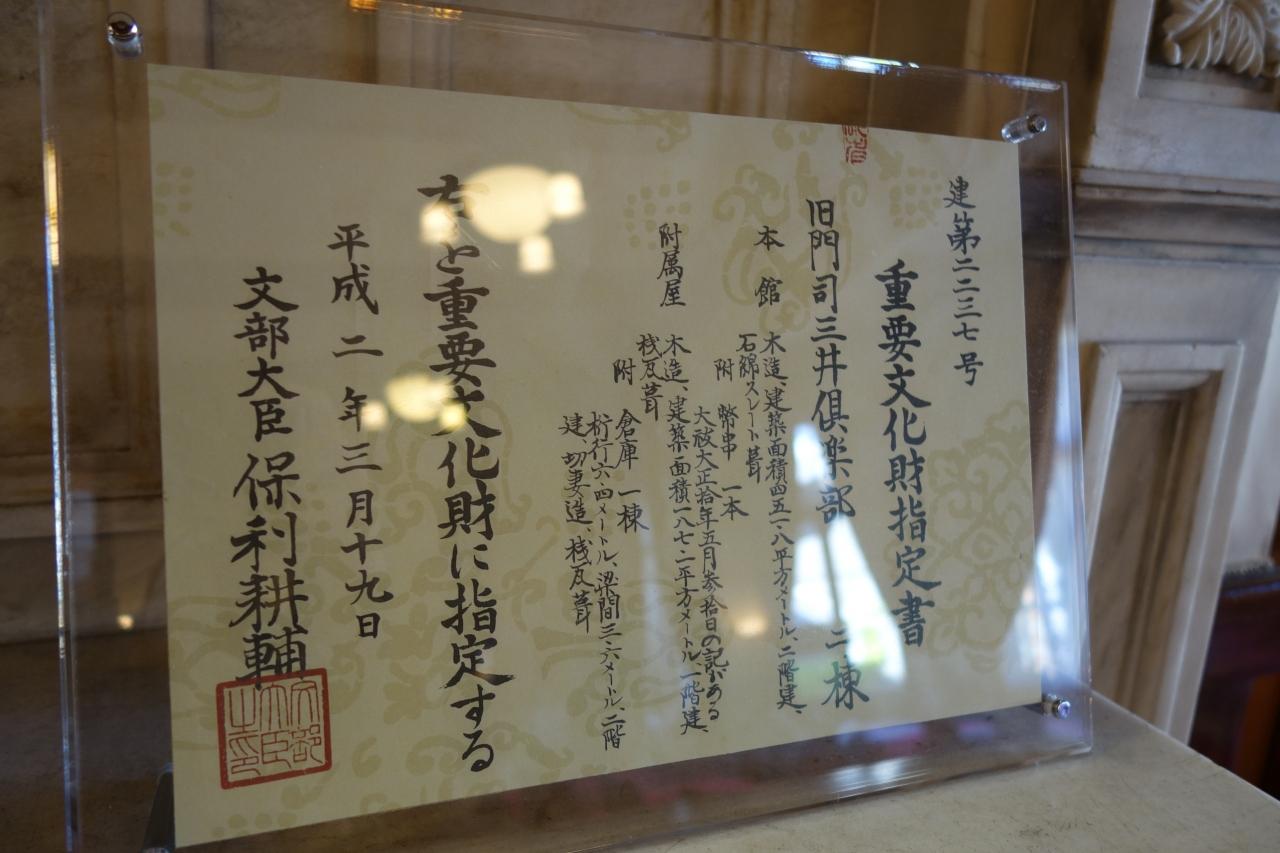 建第二二三七号
重要文化財指定書
旧門司三井倶楽部 二棟
本館
木造、建築面積四五一・八平方メートル、二階建、
石綿スレート葺
附 幣串 一本
大祓大正拾年五月参拾日の記がある
附属屋
木造、建築面積一八七・二平方メートル、一階建、
桟瓦葺
附 倉庫 一棟
桁行六・四メートル、梁間三・六メートル、二階
建、切妻造、桟瓦葺
右を重要文化財に指定する
平成二年三月十九日
文部大臣 保利耕輔
文部大臣之印